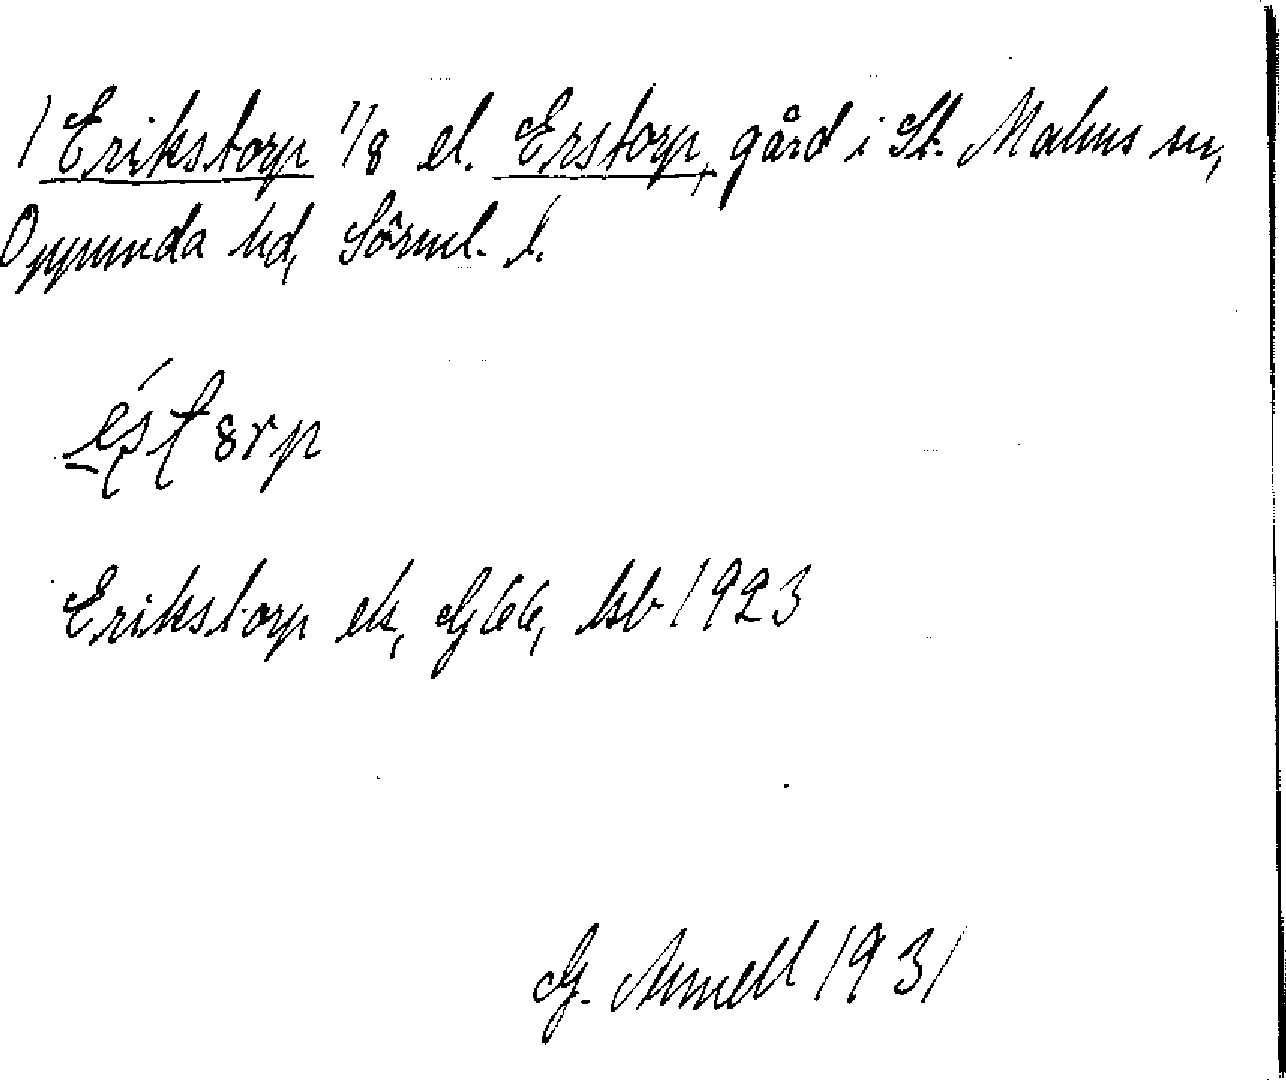 1 Erikstorp 1/8 el. Erstorp, gård i St. Malms sn,
Oppunda hd, Sörml. l.
Erikstorp ek, G66, ksb 1923
G. Arnell 1931